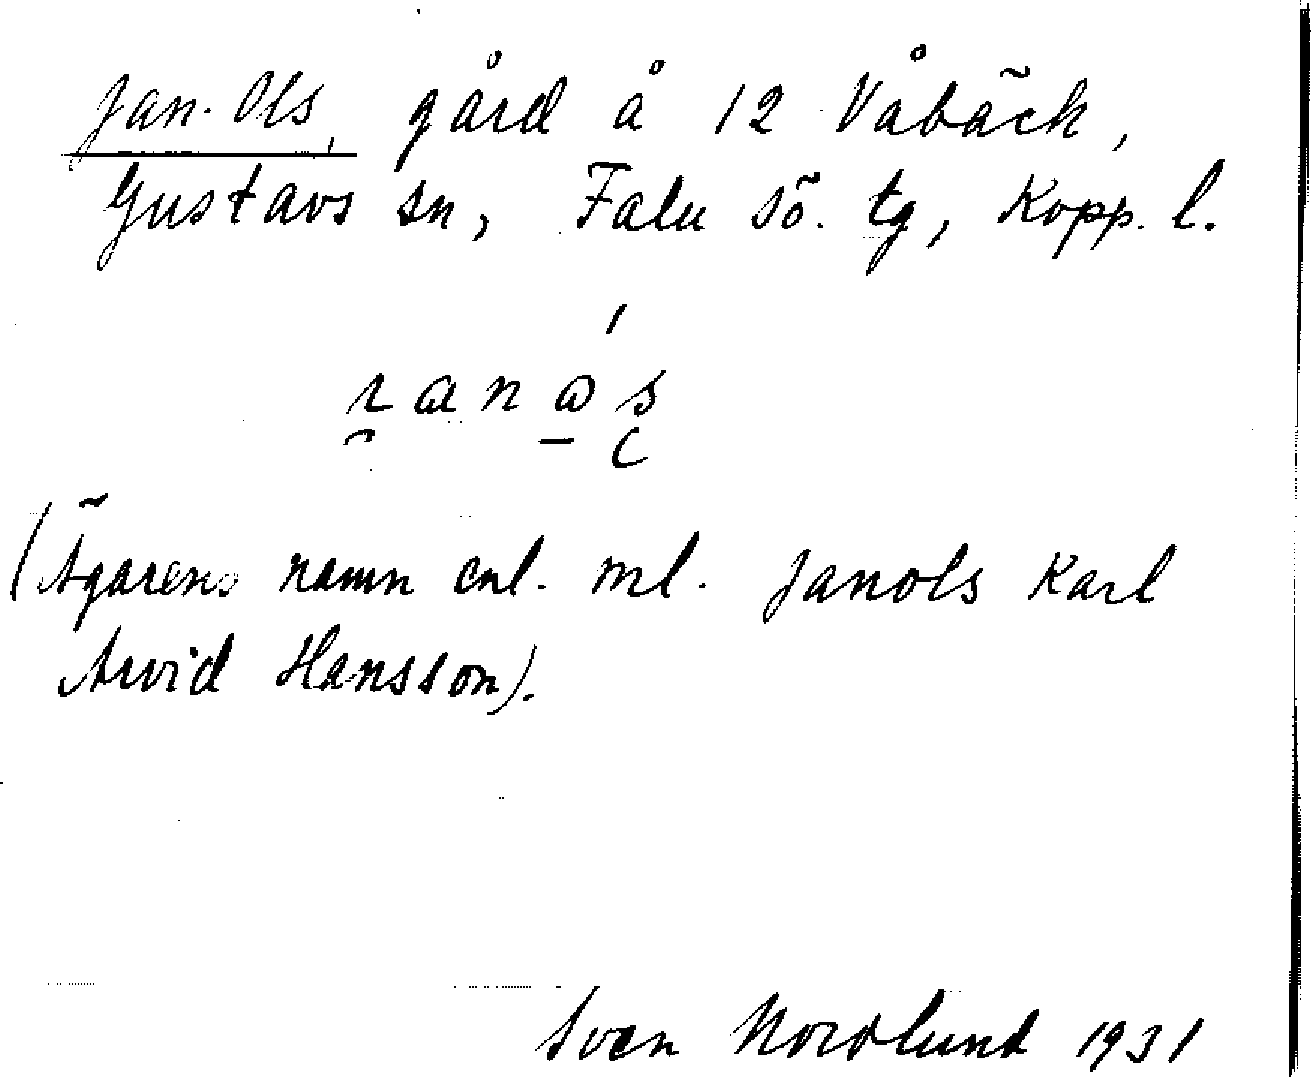 Jan-Ols, gård å 12 Våbäck,
Gustavs sn, Falu sö. tg, Kopp. l.
(Ägarens namn enl. ml. Janols Karl
Arvid Hansson).
Sven Nordlund 1931